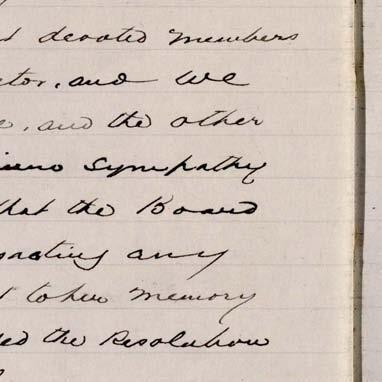 devoted members
and we
and the other
sympathy
that the Board
any
to her memory
the Resolution